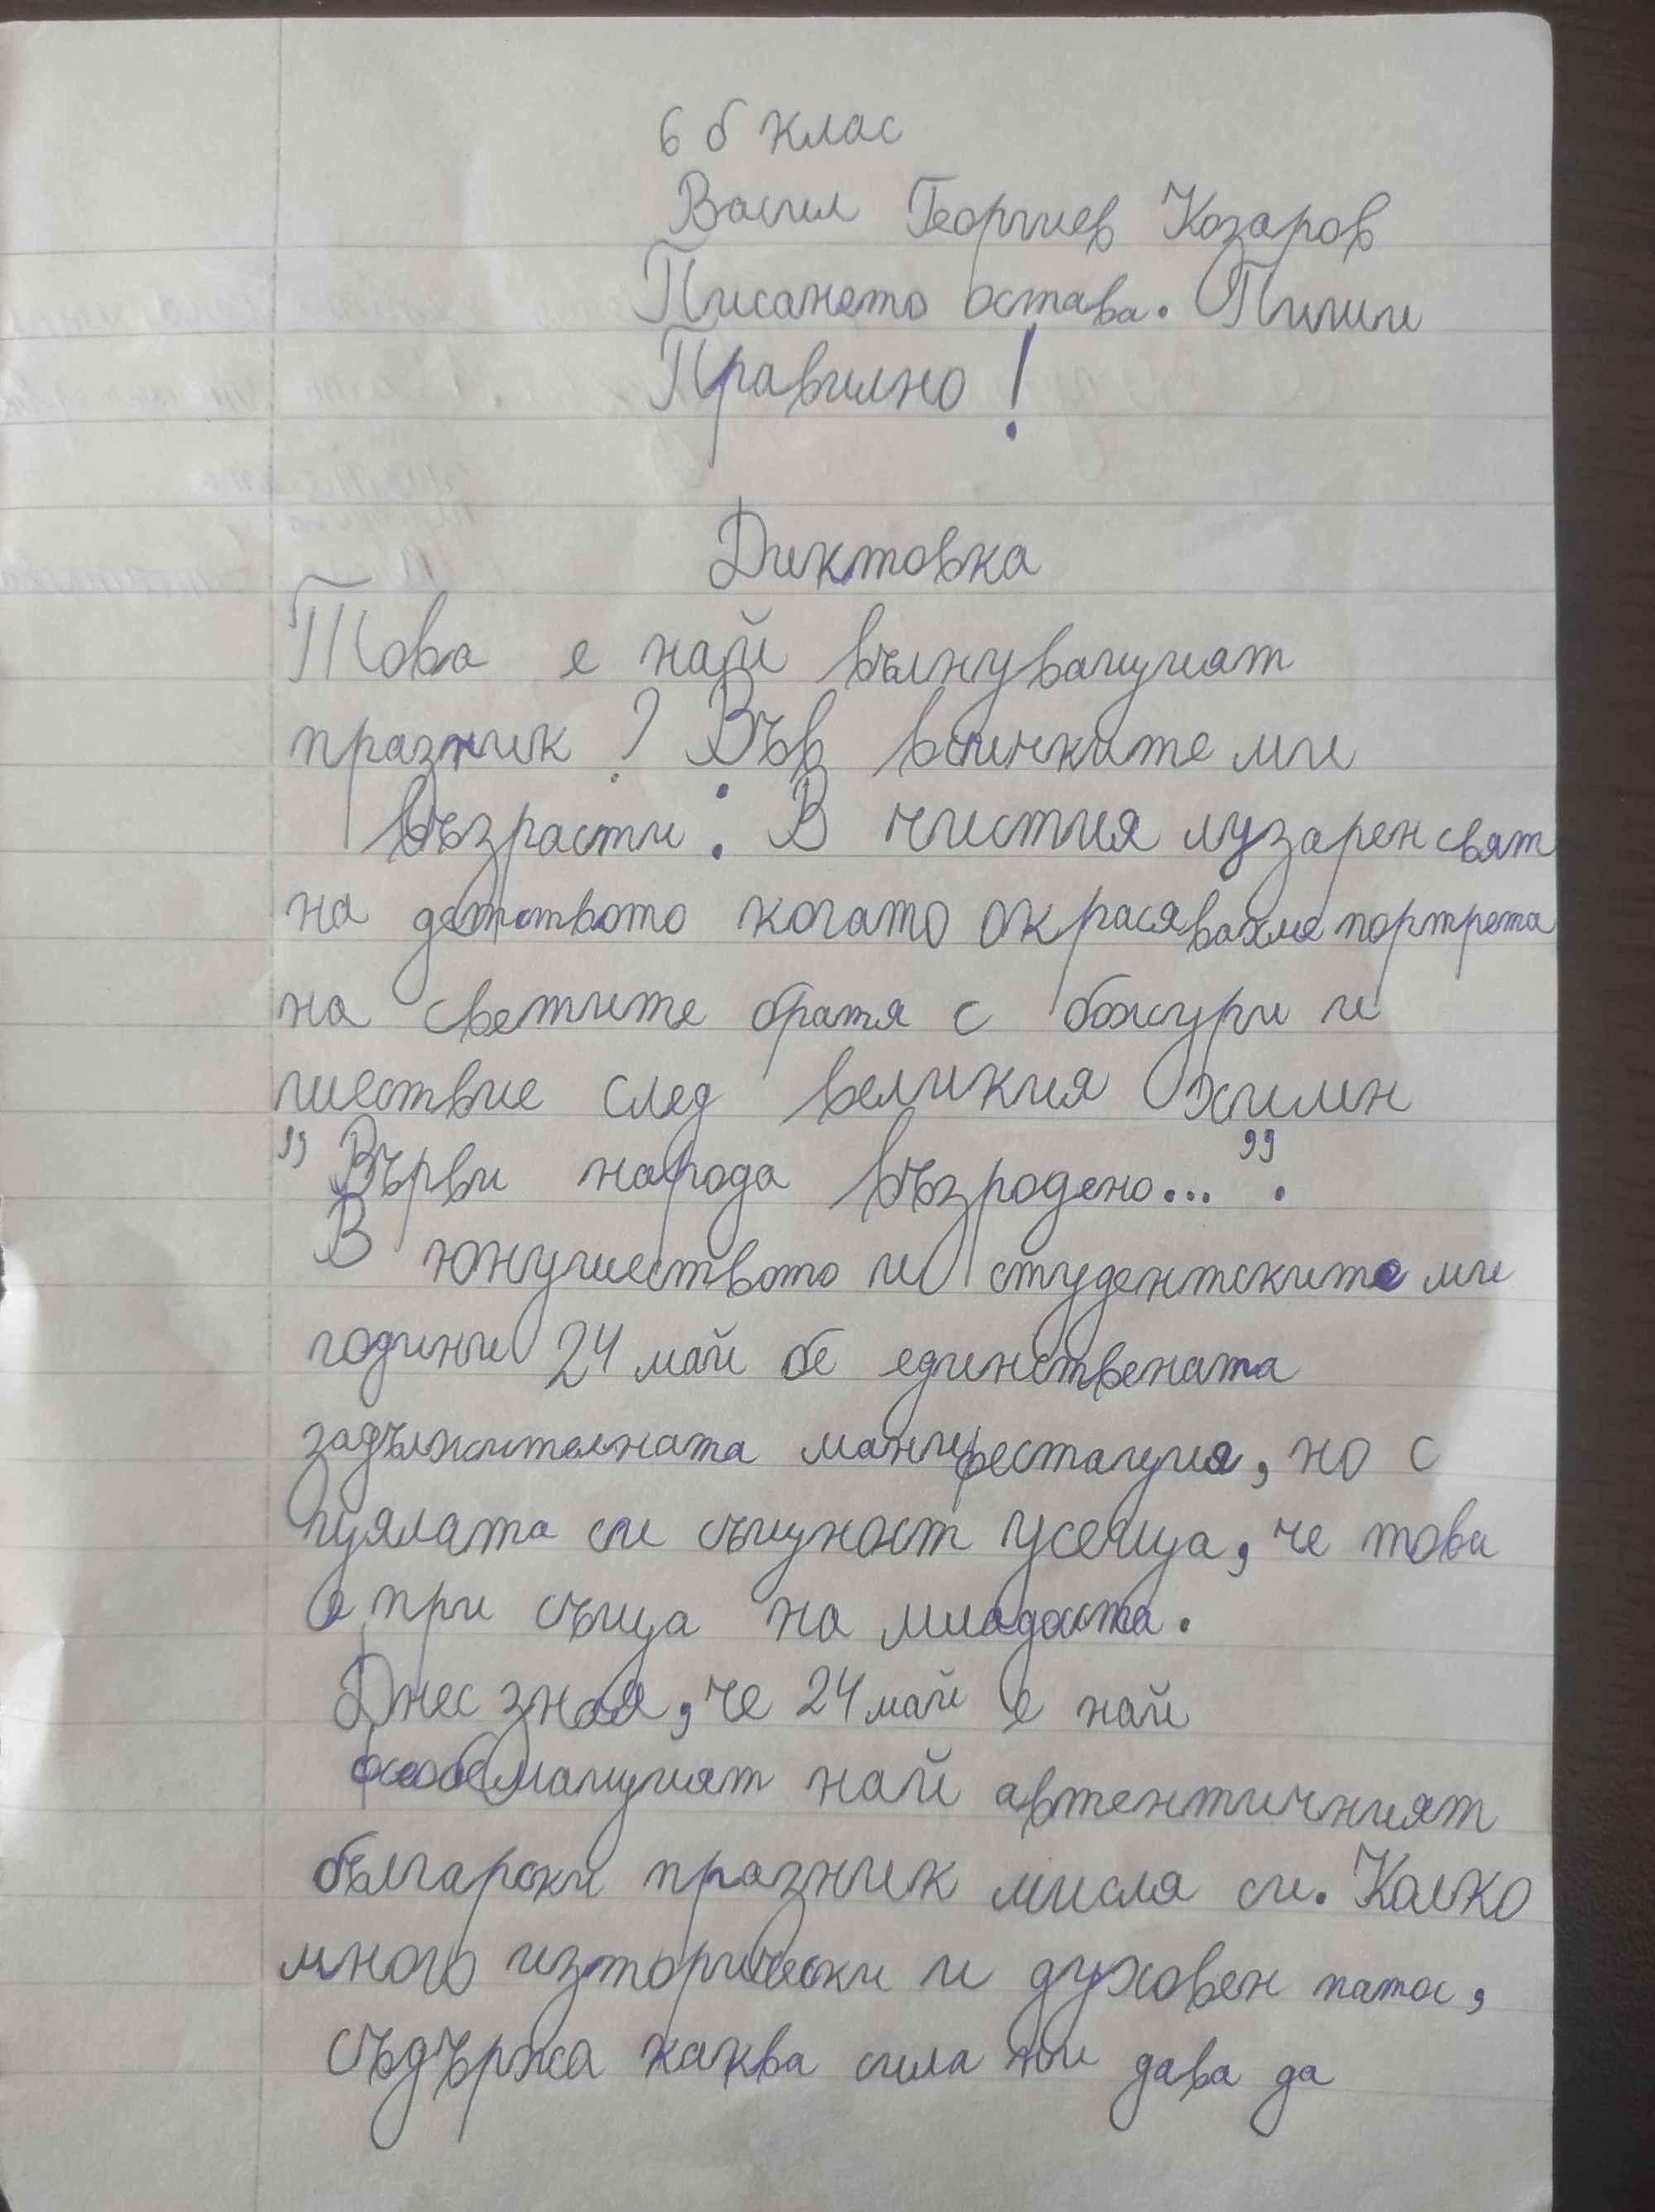 6 б клас
Васил Георгиев Козаров
Писането остава. Пиши
Правилно!
Диктовка
Това е най вълнуващият
празник? Във всичките ми
възрасти: В чистия лузарен свят
на детството когато окрасявахме портрета
на светите братя с божури и
шествие след великия Химн
"Върви народа възродено...".
В юнушеството и студентските ми
години 24 май бе единствената
задължителната манифестация, но с
цялата си същност усещца, че това
е при същца на младоста.
Днес зная, че 24 май е най
най автентичният
български празник мисля си. Колко
много изторически и духовен патос,
съдържа каква сила ни дава да